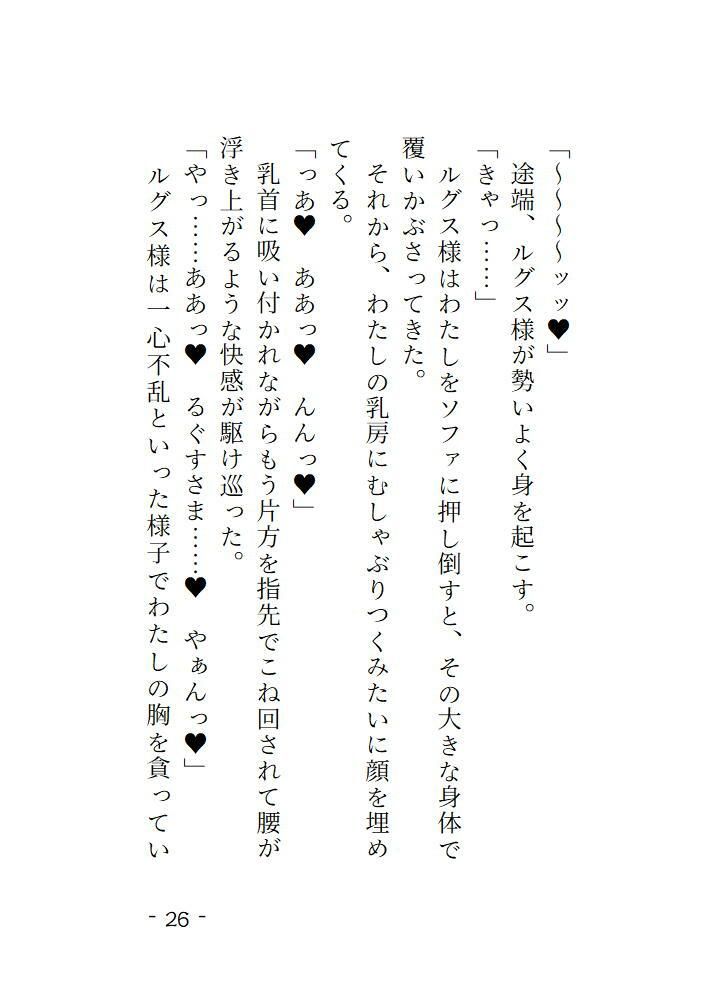 「～～～～ッッ♥」
　途端、ルグス様が勢いよく身を起こす。
「きゃっ……」
　ルグス様はわたしをソファに押し倒すと、その大きな身体で
覆いかぶさってきた。
　それから、わたしの乳房にむしゃぶりつくみたいに顔を埋め
てくる。
「っあ♥　ああっ♥　んんっ♥」
　乳首に吸い付かれながらもう片方を指先でこね回されて腰が
浮き上がるような快感が駆け巡った。
「やっ……ああっ♥　るぐすさま……♥　やぁんっ♥」
　ルグス様は一心不乱といった様子でわたしの胸を貪ってい
- 26 -